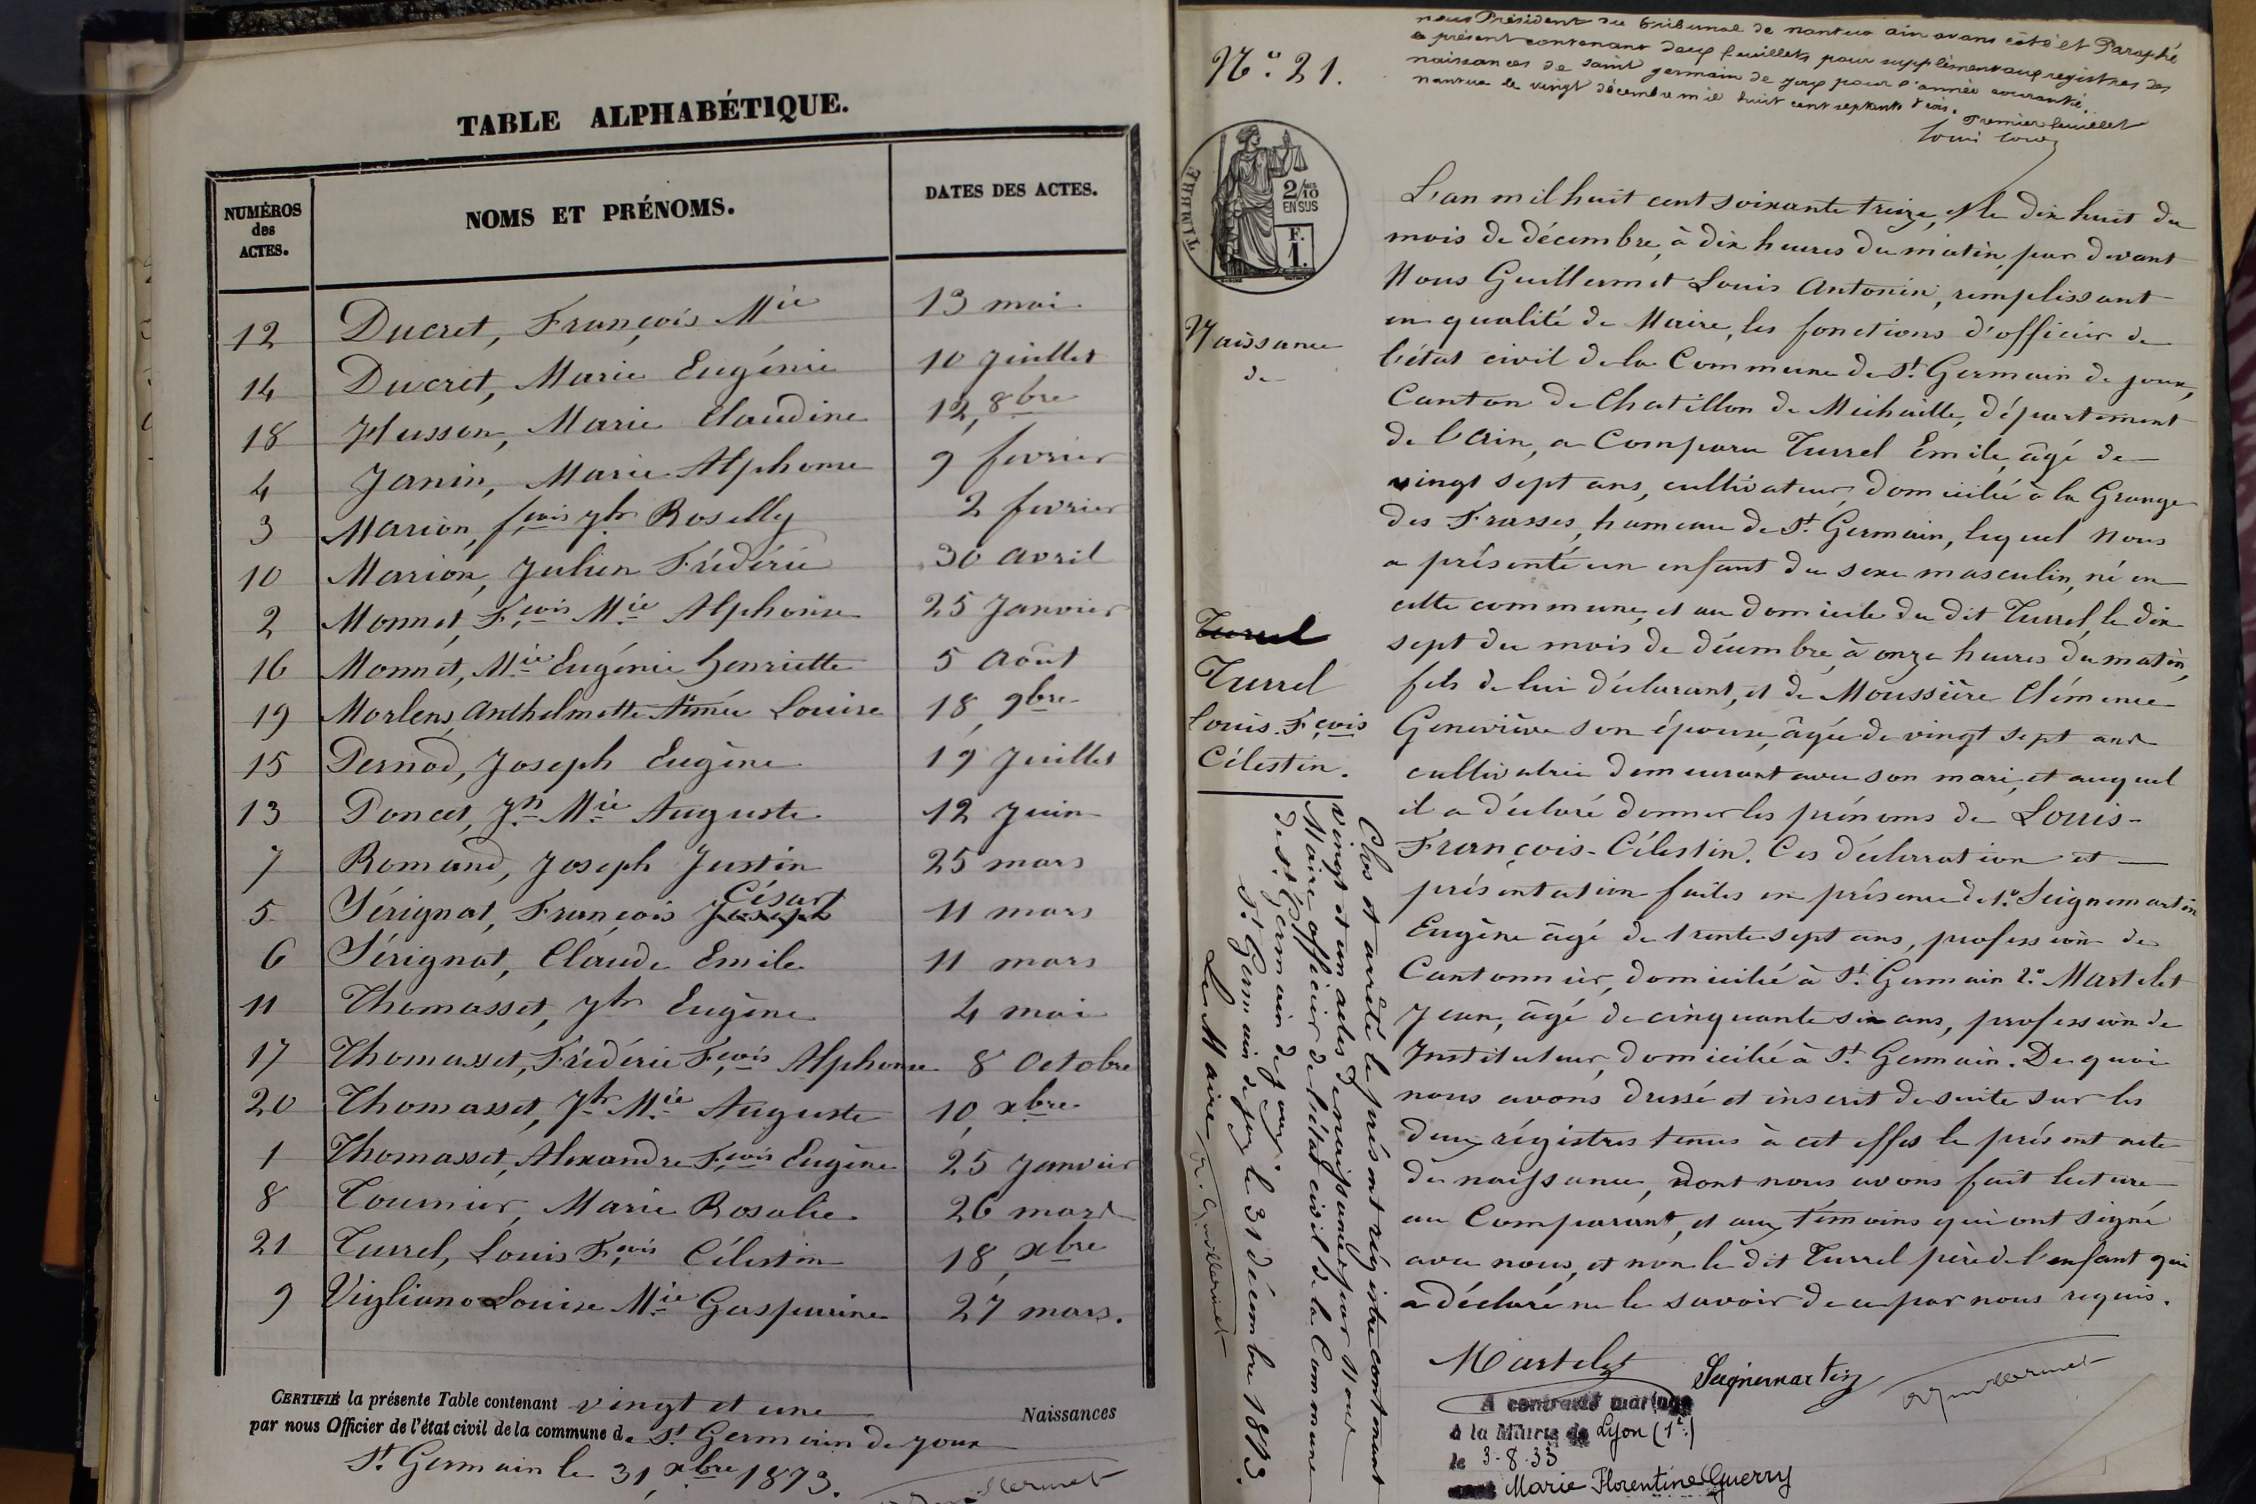 TABLE ALPHABÉTIQUE.
NUMÉROS des ACTES.
NOMS ET PRÉNOMS.
DATES DES ACTES.
12 Ducret, François Mie 13 mai
14 Ducret, Marie Eugénie 10 Juillet
18 Husson, Marie Claudine 12, 8bre
4 Janin, Marie Alphonse 9 fevrier
3 Marion, fçois Jh Roselly 2 fevrier
10 Marion, Julien Frédéric 30 avril
2 Monnet, Fçois Mie Alphonse 25 Janvier
16 Monnet, Mie Eugénie henriette 5 Août
19 Morlens, Anthelmette Aimée Louise 18, 9bre
15 Pernod, Joseph Eugène 19 Juillet
13 Poncet, Jn Mie Auguste 12 Juin
7 Romand, Joseph Justin 25 mars
César
5 Sérignat, François Joseph 11 mars
6 Sérignat, Claude Emile 11 mars
11 Thomasset, Jh Eugène 4 mai
17 Thomasset, Frédéric Fçois Alphonse 8 Octobre
20 Thomasset, Jh Mie Auguste 10, xbre
1 Thomasset, Alexandre Fçois Eugène 25 Janvier
8 Tournier, Marie Rosalie 26 mars
21 Turrel, Louis Fçois Célestin 18, xbre
9 Vigliano Louise Mie Gasparine 27 mars.
CERTIFIÉ la présente Table contenant vingt et une Naissances
par nous Officier de l'état civil de la commune de St Germain de Joux
St Germain le 31, xbre 1873.
nous Président du tribunal de nantua ain avons côté et Paraphé
le présent contenant deux feuillets pour supplément aux registres des
naissances de saint germain de joux pour l'année courante.
nantua le vingt décembre mil huit cent septante trois.
Premier feuillet
No. 21.
TIMBRE
2/10
EN SUS
F.
1.
Naissance
de
Turrel
Turrel
Louis. Fçois
Célestin.
L'an mil huit cent soixante treize, et le dix huit du
mois de décembre, à dix heures du matin, par devant
Nous Guillermet Louis Antonin, remplissant
en qualité de Maire, les fonctions d'officier de
l'état civil de la Commune de St Germain de joux,
Canton de Chatillon de Michaille, département
de l'Ain, a Comparu Turrel Émile, âgé de
vingt sept ans, cultivateur, domicilié à la Grange
des Frasses, hameau de St Germain, lequel Nous
a présenté un enfant du sexe masculin, né en
cette commune, et au domicile du dit Turrel, le dix
sept du mois de décembre, à onze heures du matin,
fils de lui déclarant, et de Moussière Clémence
Geneviève son épouse, âgée de vingt sept ans
cultivatrice demeurant avec son mari, et auquel
il a déclaré donner les prénoms de Louis-
François-Célestin. Ces déclaration et
présentation faites en présence de 1o Seignemartin
Eugène âgé de trente sept ans, profession de
Cantonnier, domicilié à St Germain 2o Martelet
Jean, âgé de cinquante six ans, profession de
Instituteur, domicilié à St Germain. De quoi
nous avons dressé et inscrit de suite sur les
deux régistres tenus à cet effet le présent acte
de naissance, dont nous avons fait lecture
au Comparant, et aux témoins qui ont signé
avec nous, et non le dit Turrel père de l'enfant qui
a déclaré ne le savoir de ce par nous requis.
Martelet
Seignemartin
Guillermet
A contracté mariage
à la Mairie de Lyon (1er)
le 3-8-33
avec Marie Florentine Guerry
Clos et arrêté le présent régistre contenant
vingt et un actes de naissances par Nous
Maire officier de l'état civil de la Commune
de St Germain de Joux.
St Germain de Joux le 31 décembre 1873.
Le Maire, Guillermet